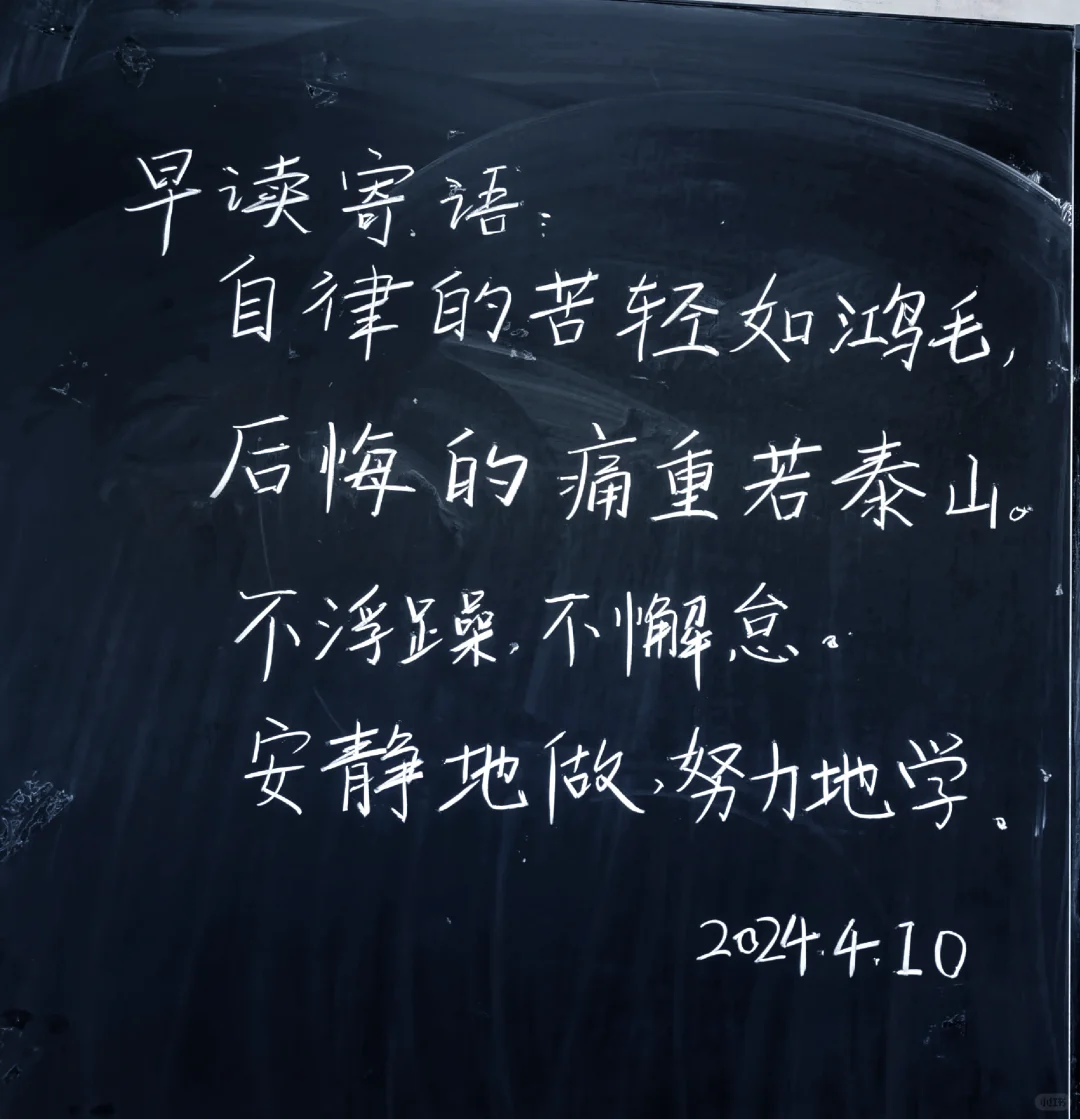 早读寄语：
自律的苦轻如鸿毛，
后悔的痛重若泰山。
不浮躁，不懈怠。
安静地做，努力地学。
2024.4.10
小红书